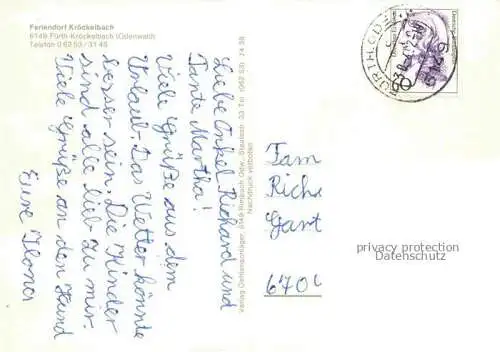 Feriendorf Kröckelbach
6149 Fürth-Kröckelbach (Odenwald)
Telefon 0 62 53 / 31 48
Liebe Onkel Richard und
Tante Martha!
Viele Grüße aus dem
Urlaub. Das Wetter könnte
besser sein. Die Kinder
sind alle lieb zu mir.
Viele Grüße an den Hund
Eure Ilona
Verlag Oehlenschläger, 6149 Rimbach Odw., Staatsstr. 33 Tel. (062 53) 74 38
Nachdruck verboten
6149
FÜRTH, ODENW
60
Fam
Rich
Gart
670
privacy protection
Datenschutz